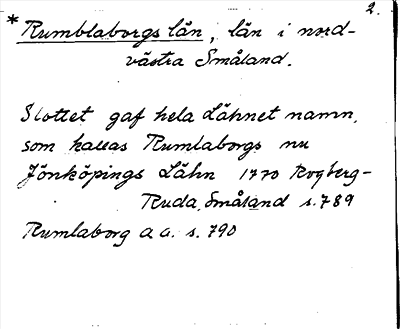 2.
* Rumblaborgs län, län i nord-
västra Småland.
Slottet gaf hela Lähnet namn,
som kallas Rumlaborgs nu
Jönköpings Lähn 1770 Rogberg-
Ruda, Småland s. 789
Rumlaborg a a. s. 790